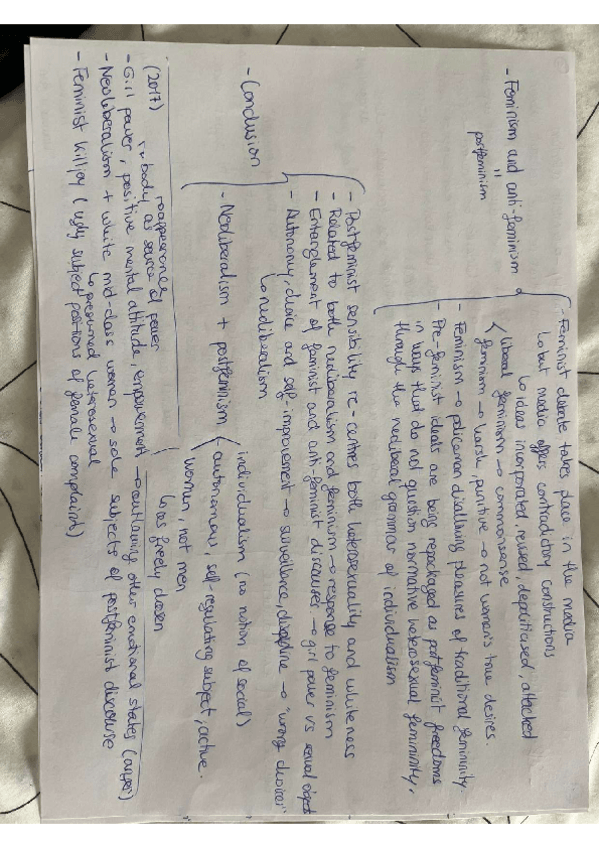 - Feminism and anti-feminism
"
postfeminism
- Feminist debate takes place in the media
↳ but media offers contradictory constructions
↳ ideas incorporated, revised, depoliticised, attacked
liberal feminism → commonsense
feminism → harsh, punitive → not women's true desires.
- Feminism → policeman disallowing pleasures of traditional femininity
- Pre-feminist ideals are being repackaged as postfeminist freedoms
in ways that do not question normative heterosexual femininity,
through the neoliberal grammar of individualism
- Conclusion
- Postfeminist sensibility re-centres both heterosexuality and whiteness
- Related to both neoliberalism and feminism → response to feminism
- Entanglement of feminist and anti-feminist discourses → girl power vs sexual object
- Autonomy, choice and self-improvement → surveillance, discipline → "wrong choices"
↳ neoliberalism
- Neoliberalism + postfeminism
individualism (no notion of social)
autonomous, self-regulating subject, active.
women, not men
↳ as freely chosen
(2017)
reappearance of
body as source of power
- Girl power, positive mental attitude, empowerment → outlawing other emotional states (anger)
- Neoliberalism + white mid-class women → sole subjects of postfeminist discourse
↳ presumed heterosexual
- Feminist killjoy (ugly subject positions of female complaint)